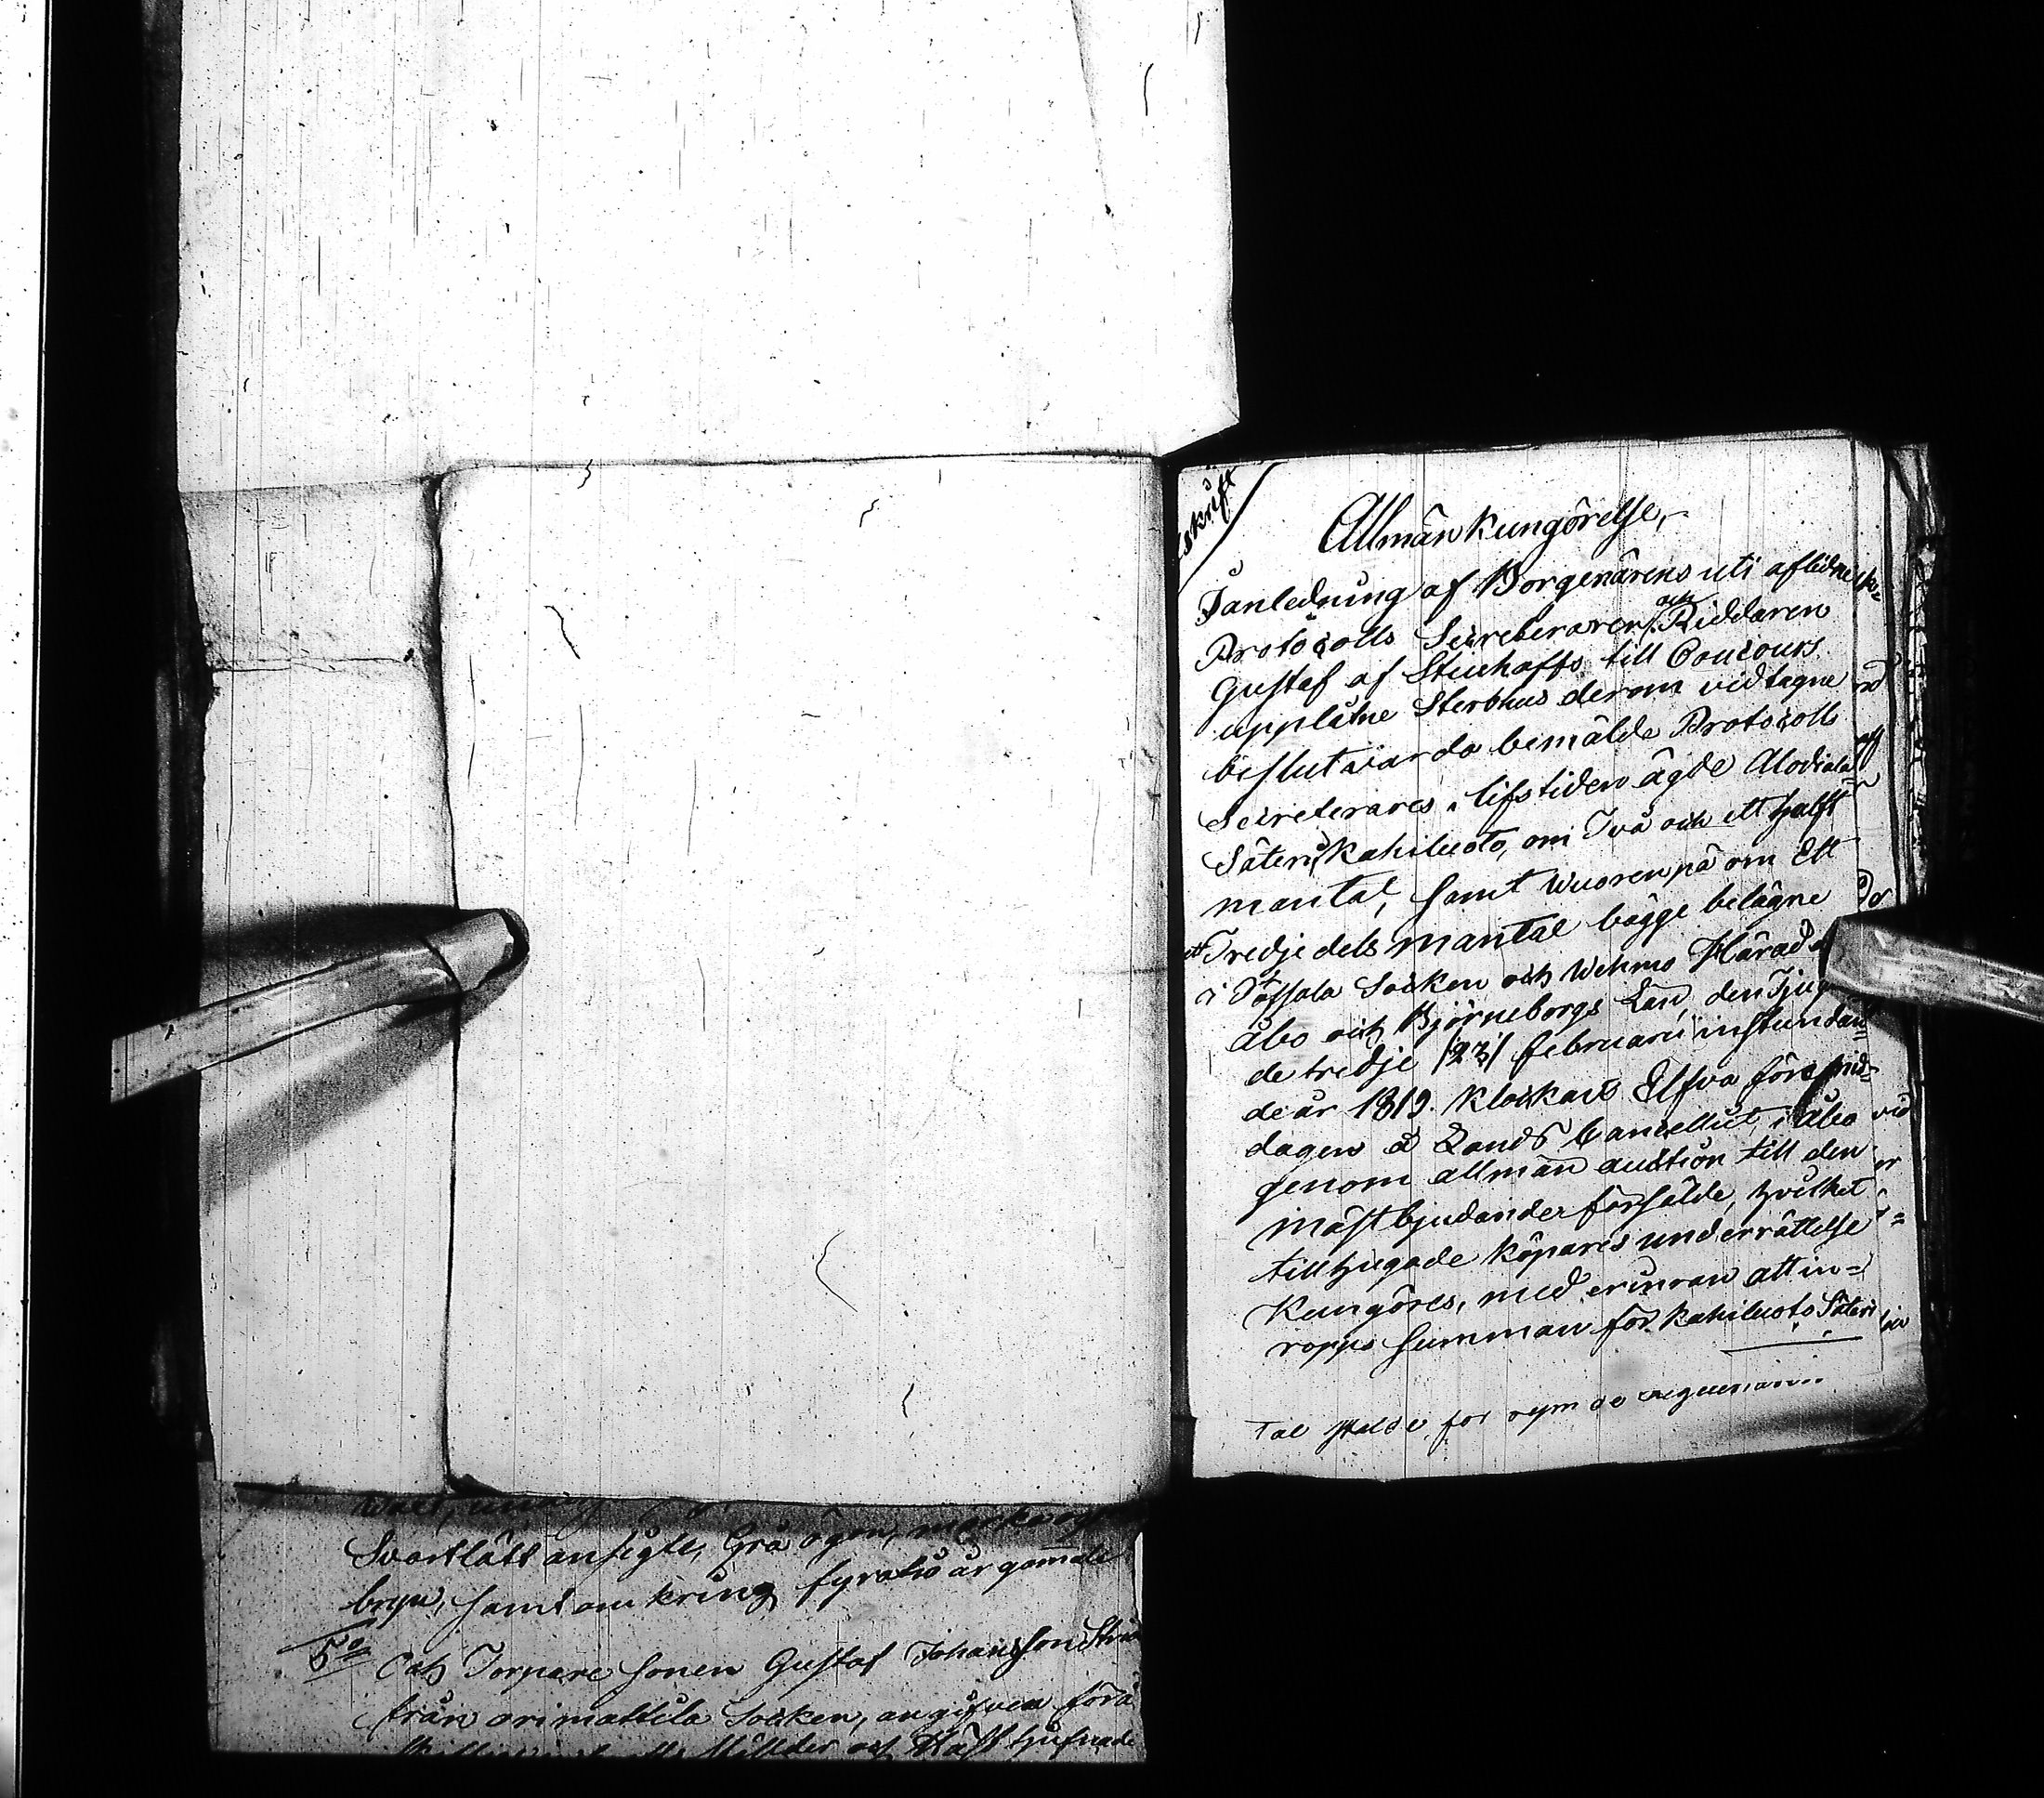 Afskrift
Allmän kungörelse,
I anledning af Borgenärens uti aflidne
Protocolls Secreteraren och Riddaren
Gustaf af Stenhoffs till Concours
upplåtne Sterbhus derom vidtagne
beslut varda bemälde Protocolls
Secreterares i lifstiden ägde Alodiala
Säteri Kahiluoto, om Två och ett halft
mantal, samt Wuorenpä om Ett
ett Tredjedels mantal bägge belägne
i Töfsala Socken och Wehmo Härad
Åbo och Björneborgs Län, den Tjug
de tredje /23/ februarii instundan=
de år 1819. Klockan Elfva före mid=
dagen å Lands Cancelliet i Åbo
genom allmän auction till den
mästbjudande försålde, hvilket
tillhugade köpares underrättelse
Kungöres, med erinran att in=
ropps Summan för Kahiluoto Säteri
Svartlätt ansigte, Grå ögon, mörka ögon
bryn, samt omkring fyratio år gammal
5o
Och Torpare Sonen Gustaf Johansson
från Orimattila Socken, angifven för
och Häst tjufnade